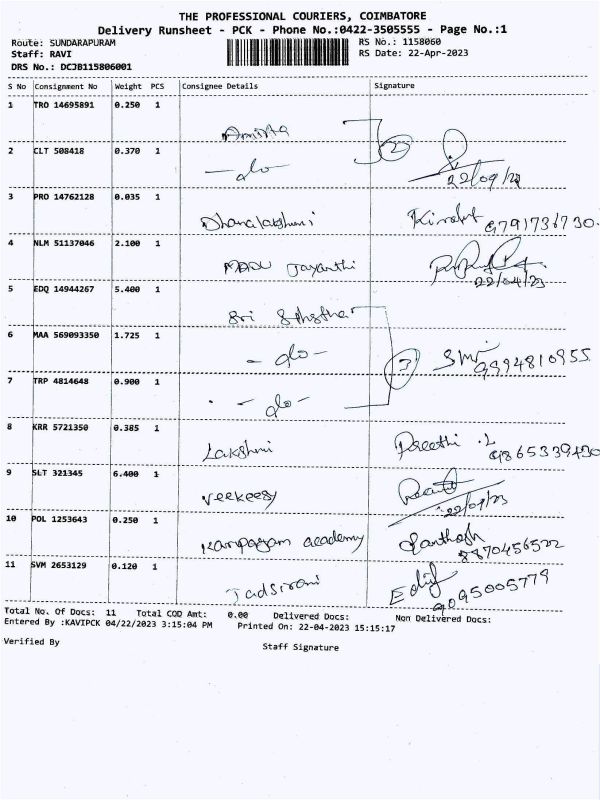 THE PROFESSIONAL COURIERS, COIMBATORE
Delivery Runsheet - PCK - Phone No.:0422-3505555 - Page No.:1
Route: SUNDARAPURAM RS No.: 1158060
Staff: RAVI RS Date: 22-Apr-2023
DRS No.: DCJB115806001
S No Consignment No Weight PCS Consignee Details Signature
1 TRO 14695891 0.250 1
Amirta 2
2 CLT 508418 0.370 1
-do-
3 PRO 14762128 0.035 1
Dhanalakshmi 9791736730
4 NLM 51137046 2.100 1
Jayanthi
22/04/23
5 EDQ 14944267 5.400 1
Sri
6 MAA 569093350 1.725 1
-do- 3 9994810955
7 TRP 4814648 0.900 1
-do-
8 KRR 5721350 0.385 1
Lakshmi Preethi .L
9 SLT 321345 6.400 1
veekeesy
10 POL 1253643 0.250 1
karpagam academy Santhosh
8870456522
11 SVM 2653129 0.120 1
9095005779
Total No. Of Docs: 11 Total COD Amt: 0.00 Delivered Docs: Non Delivered Docs:
Entered By :KAVIPCK 04/22/2023 3:15:04 PM Printed On: 22-04-2023 15:15:17
Verified By Staff Signature